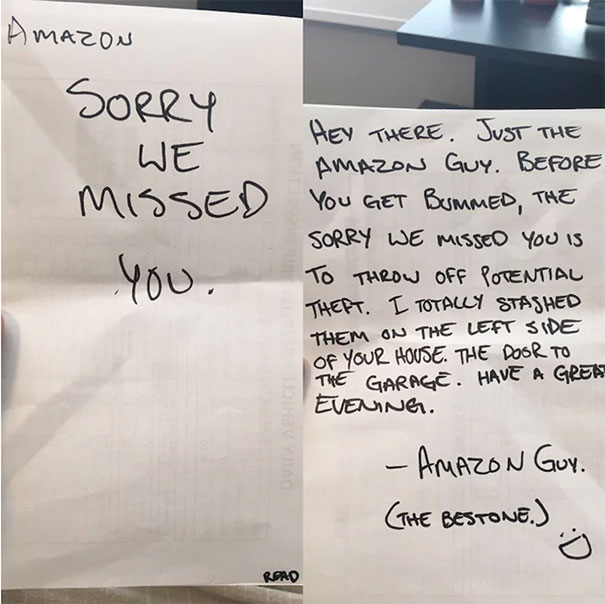 AMAZON
SORRY
WE
MISSED
YOU.
READ
HEY THERE. JUST THE
AMAZON GUY. BEFORE
YOU GET BUMMED, THE
SORRY WE MISSED YOU IS
TO THROW OFF POTENTIAL
THEFT. I TOTALLY STASHED
THEM ON THE LEFT SIDE
OF YOUR HOUSE. THE DOOR TO
THE GARAGE. HAVE A GREAT
EVENING.
– AMAZON GUY.
(THE BESTONE.)